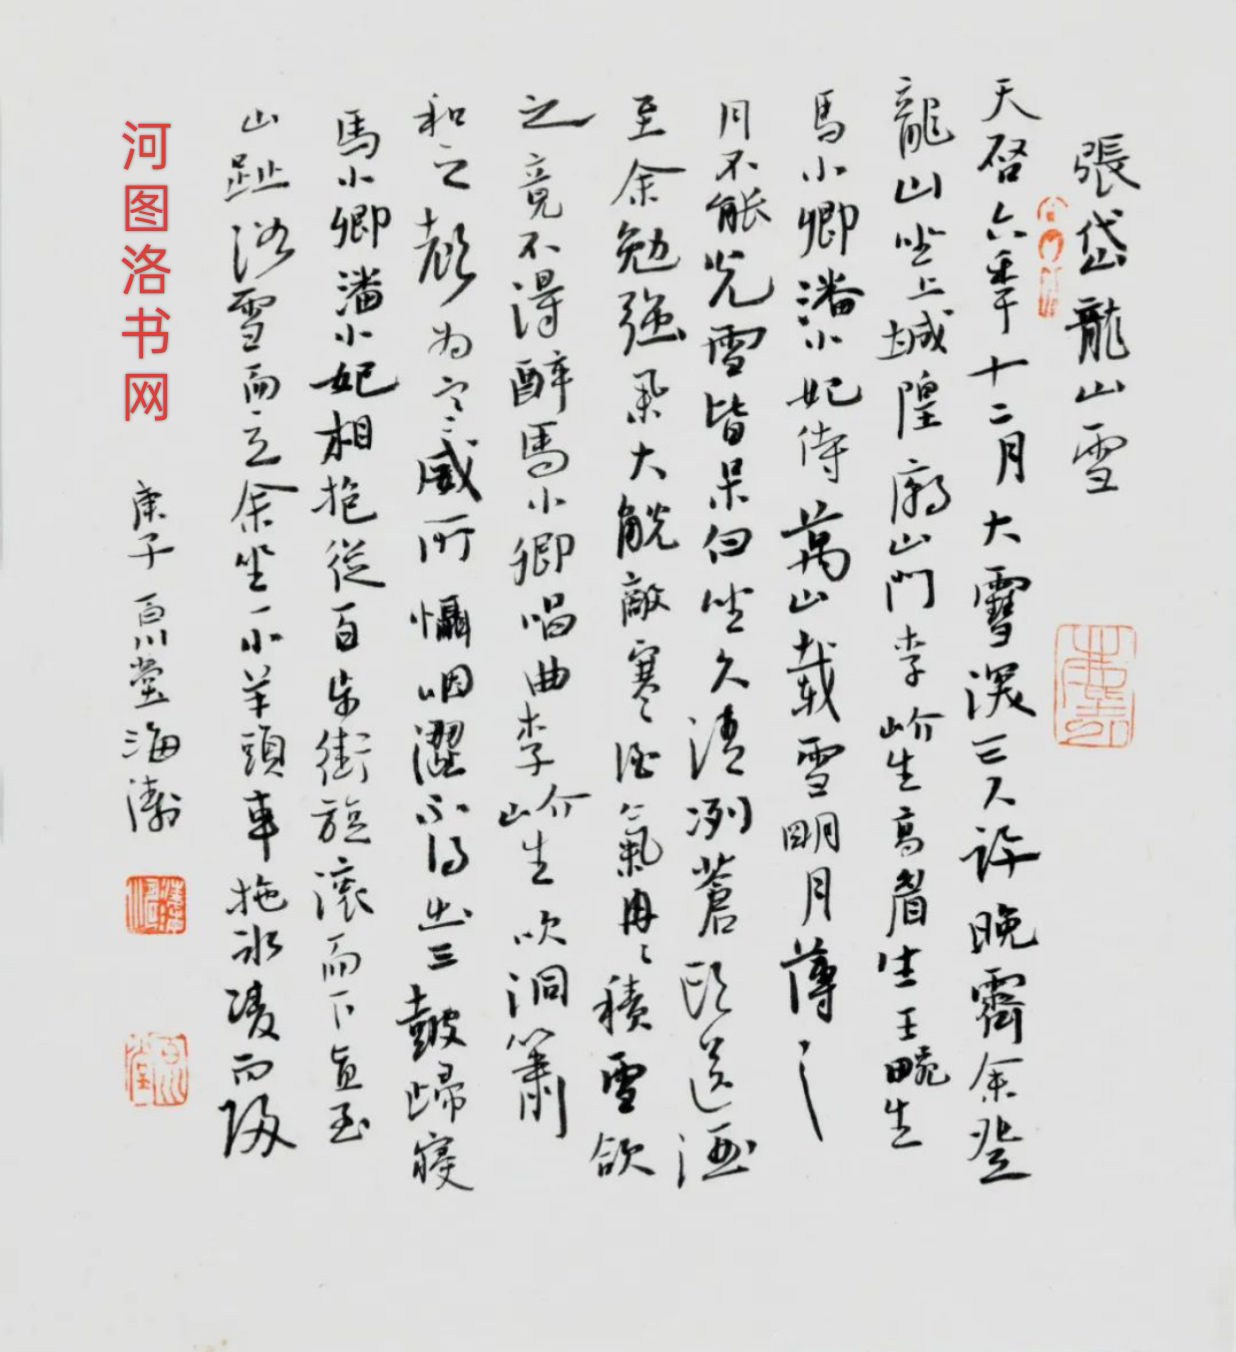 張岱龍山雪
天啓六年十二月大雪深三尺許晚霽余登
龍山坐上城隍廟山門李岕生高眉生王畹生
馬小卿潘小妃侍萬山載雪明月薄之
月不能光雪皆呆白坐久清冽蒼頭送酒
至余勉強舉大觥敵寒寒酒氣冉冉積雪欱
之竟不得醉馬小卿唱曲李岕生吹洞簫
和之聲為寒威所懾咽澀不得出三鼓歸寢
馬小卿潘小妃相抱從百步街旋滾而下直至
山趾浴雪而立余坐一小羊頭車拖冰凌而歸
庚子 百川堂海濤
河图洛书网